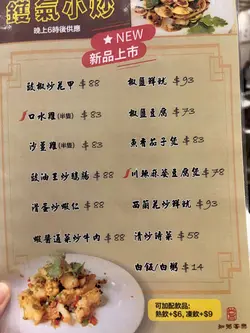 鑊氣小炒
晚上6時後供應
★NEW
新品上市
豉椒炒花甲 $88
口水雞(半隻) $83
沙薑雞(半隻) $83
豉油王炒鵝腸 $88
滑蛋炒蝦仁 $88
蝦醬通菜炒牛肉 $88
椒鹽鮮魷 $93
椒鹽豆腐 $73
魚香茄子煲 $83
川辣麻婆豆腐煲 $78
西蘭花炒鮮魷 $93
清炒時菜 $58
白飯/白粥 $14
可加配飲品:
熱飲+$6, 凍飲+$9